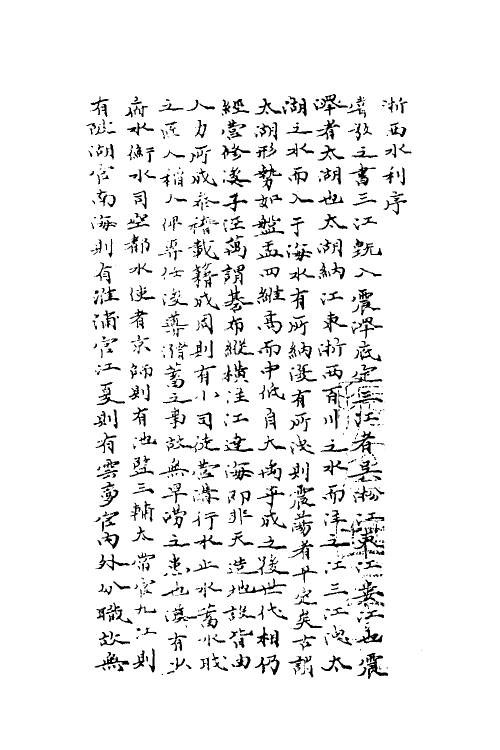 浙西水利序
嘗攷之書三江旣入震澤底定三江者吳淞江東江婁江也震
澤者太湖也太湖納江東浙西百川之水而洋之江三江洩太
湖之水而入于海水有所納復有所洩則震蕩者平定矣古謂
太湖形勢如盤盂四維髙而中低自大禹平成之後世代相仍
經營修濬子涇萬謂碁布縱横注江達海即非天造地設皆由
人力所成叅稽載籍成周則有小司徒營溝行水止水蓄水職
之匠人稍人俾專任浚導潴蓄之事故無旱澇之患也漢有少
府水衡水司空都水使者京師則有池監三輔太常官九江則
有陂湖官南海則有洭浦官江夏則有雲夢官内外分職故無